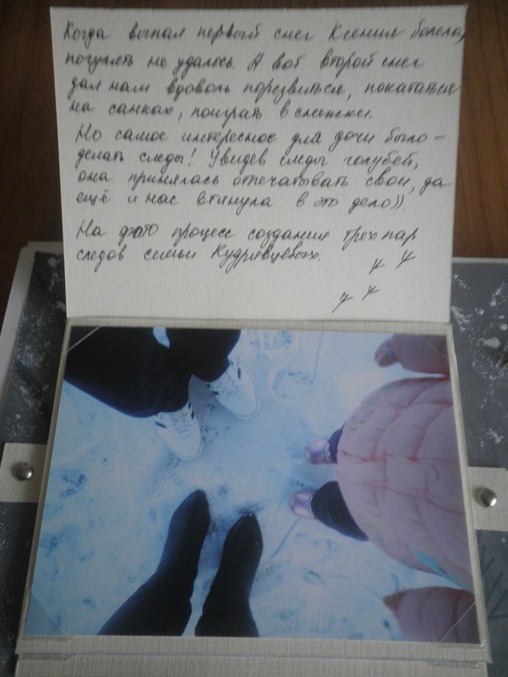 Когда выпал первый снег Ксения болела,
погулять не удалось. А вот второй снег
дал нам вдоволь порезвиться, покататься
на санках, поиграть в снежки.
Но самое интересное для дочи было –
делать следы! Увидев следы голубей,
она принялась отпечатывать свои, да
ещё и нас втянула в это дело)).
На фото процесс создания трех пар
следов семьи Кудрявцевых.